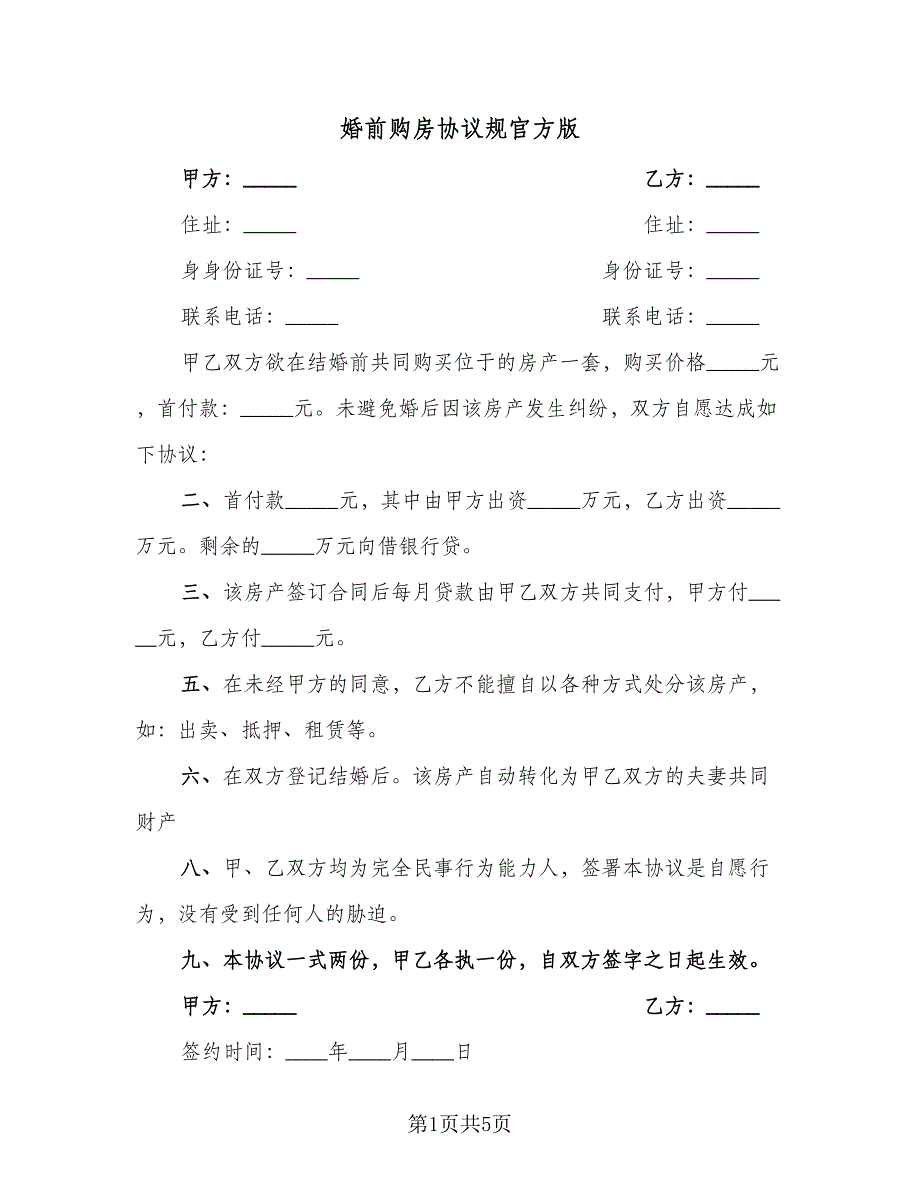 婚前购房协议规官方版
甲方：_____ 乙方：_____
住址：_____ 住址：_____
身身份证号：_____ 身份证号：_____
联系电话：_____ 联系电话：_____
甲乙双方欲在结婚前共同购买位于的房产一套，购买价格_____元
，首付款：_____元。未避免婚后因该房产发生纠纷，双方自愿达成如
下协议：
二、首付款_____元，其中由甲方出资_____万元，乙方出资_____
万元。剩余的_____万元向借银行贷。
三、该房产签订合同后每月贷款由甲乙双方共同支付，甲方付___
__元，乙方付_____元。
五、在未经甲方的同意，乙方不能擅自以各种方式处分该房产，
如：出卖、抵押、租赁等。
六、在双方登记结婚后。该房产自动转化为甲乙双方的夫妻共同
财产
八、甲、乙双方均为完全民事行为能力人，签署本协议是自愿行
为，没有受到任何人的胁迫。
九、本协议一式两份，甲乙各执一份，自双方签字之日起生效。
甲方：_____ 乙方：_____
签约时间：____年____月____日
第1页共5页